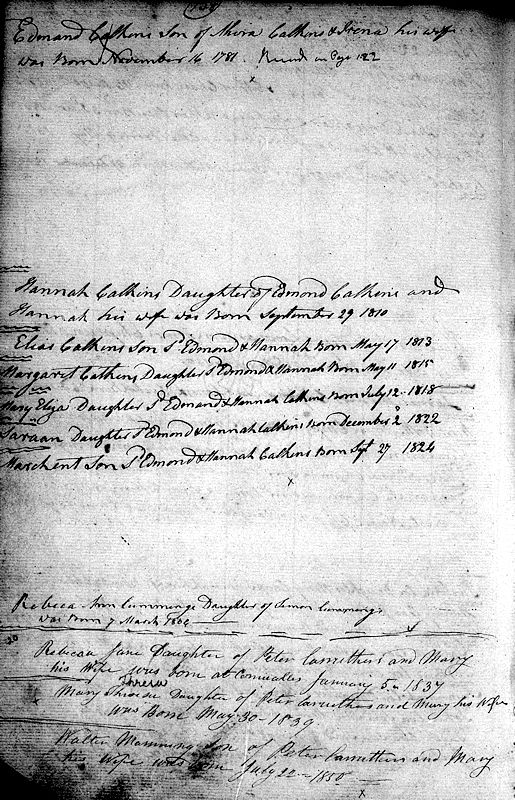 Edmand Calkins Son of Calkins & Irena his wife
was Born November 16 1781. Record on Page 122
Hannah Calkins Daughter of Edmond Calkins and
Hannah his wife was Born September 29 1810
Elias Calkins Son Do Edmond & Hannah Born May 17 1813
Margaret Calkins Daughter Do Edmond & Hannah Born May 11 1815
Mary Eliza Daughter Do Edmand & Hannah Calkins Born July 12 1818
Daughter Do Edmond & Hannah Calkins Born December 2 1822
Marchent Son Do Edmond & Hannah Calkins Born Sept 27 1824
Rebeca Ann Cummings Daughter of Simon Cummings
was Born 7 March
Rebecca Jane Daughter of Peter Carruthers and Mary
his Wife was born at Cornwallis January 5 1837
Mary Daughter of Peter Carruthers and Mary his Wife
was Born May 30 - 1839
Walter Manning Son of Peter Carruthers and Mary
his Wife was born July 20 - 1850